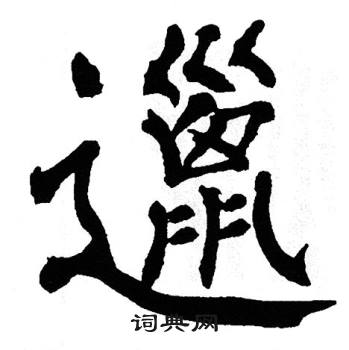 邋
词典网